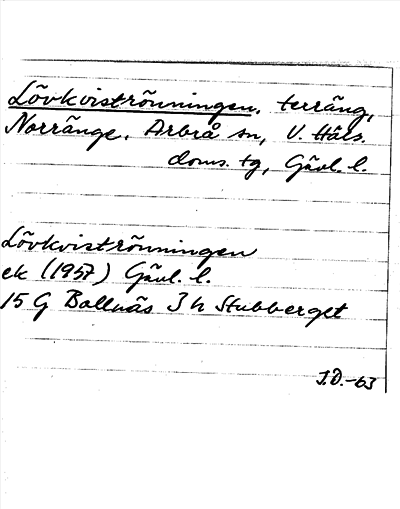 Lövkviströnningen, terräng,
Norränge, Arbrå sn, V. Häls.
doms. tg, Gävl. l.
Lövkviströnningen
ek (1957) Gävl. l.
15 G Bollnäs 3 h Stubberget
J.D.-63